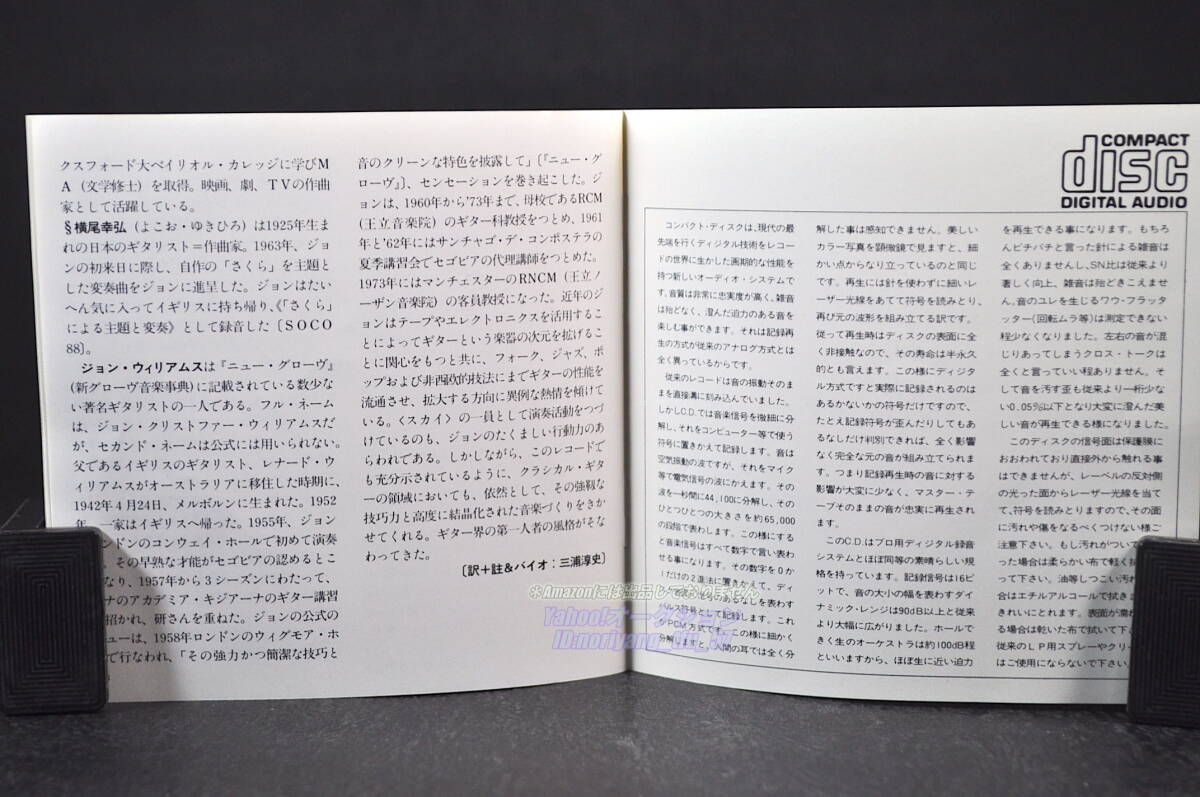 クスフォード大ベイリオル・カレッジに学びM
A（文学修士）を取得。映画、劇、TVの作曲
家として活躍している。
§横尾幸弘（よこお・ゆきひろ）は1925年生ま
れの日本のギタリスト＝作曲家。1963年、ジョ
ンの初来日に際し、自作の「さくら」を主題と
した変奏曲をジョンに進呈した。ジョンはたい
へん気に入ってイギリスに持ち帰り、《「さくら」
による主題と変奏》として録音した〔SOCO
88〕。
ジョン・ウィリアムスは『ニュー・グローヴ』
(新グローヴ音楽事典) に記載されている数少な
い著名ギタリストの一人である。フル・ネーム
は、ジョン・クリストファー・ウィリアムスだ
が、セカンド・ネームは公式には用いられない。
父であるイギリスのギタリスト、レナード・ウ
ィリアムスがオーストラリアに移住した時期に、
1942年4月24日、メルボルンに生まれた。1952
年、一家はイギリスへ帰った。1955年、ジョン
ンドンのコンウェイ・ホールで初めて演奏
、その早熟な才能がセゴビアの認めるとこ
なり、1957年から3シーズンにわたって、
ナのアカデミア・キジアーナのギター講習
招かれ、研さんを重ねた。ジョンの公式の
ューは、1958年ロンドンのウィグモア・ホ
で行なわれ、「その強力かつ簡潔な技巧と
音のクリーンな特色を披露して」〔『ニュー・グ
ローヴ』〕、センセーションを巻き起こした。ジ
ョンは、1960年から'73年まで、母校であるRCM
(王立音楽院) のギター科教授をつとめ、1961
年と'62年にはサンチャゴ・デ・コンポステラの
夏季講習会でセゴビアの代理講師をつとめた。
1973年にはマンチェスターのRNCM（王立ノ
ーザン音楽院）の客員教授になった。近年のジ
ョンはテープやエレクトロニクスを活用するこ
とによってギターという楽器の次元を拡げるこ
とに関心をもつと共に、フォーク、ジャズ、ポ
ップおよび非西欧的技法にまでギターの性能を
流通させ、拡大する方向に異例な熱情を傾けて
いる。〈スカイ〉の一員として演奏活動をつづ
けているのも、ジョンのたくましい行動力のあ
らわれである。しかしながら、このレコードで
も充分示されているように、クラシカル・ギタ
ーの領域においても、依然として、その強靱な
技巧力と高度に結晶化された音楽づくりをきか
せてくれる。ギター界の第一人者の風格がそな
わってきた。
〔訳＋註＆バイオ：三浦淳史〕
COMPACT
disc
DIGITAL AUDIO
コンパクト・ディスクは、現代の最
先端を行くディジタル技術をレコー
ドの世界に生かした画期的な性能を
持つ新しいオーディオ・システムで
す。音質は非常に忠実度が高く、雑音
は殆どなく、澄んだ迫力のある音を
楽しむ事ができます。それは記録再
生の方式が従来のアナログ方式とは
全く異っているからです。
従来のレコードは音の振動そのま
まを直接溝に刻み込んでいました。
しかしC.D.では音楽信号を微細に分
解し、それをコンピューター等で使う
符号に置きかえて記録します。音は
空気振動の波ですが、それをマイク
等で電気信号の波にかえます。その
波を一秒間に44,100に分解し、その
ひとつひとつの大きさを約65,000
の段階で表わします。この様にする
と音楽信号はすべて数字で言い表わ
せる事になります。その数字を0か
1だけの2進法に置きかえて、ディ
スクに信号のあるなしを表わす
ルス符号として記録します。これ
がPCM方式です。この様に細かく
分解しますと、人間の耳では全く分
解した事は感知できません。美しい
カラー写真を顕微鏡で見ますと、細
かい点からなり立っているのと同じ
です。再生には針を使わずに細いレ
ーザー光線をあてて符号を読みとり、
再び元の波形を組み立てる訳です。
従って再生時はディスクの表面に全
く非接触なので、その寿命は半永久
的とも言えます。この様にディジタ
ル方式ですと実際に記録されるのは
あるかないかの符号だけですので、
たとえ記録符号が歪んだりしてもあ
るなしだけ判別できれば、全く影響
なく完全な元の音が組み立てられま
す。つまり記録再生時の音に対する
影響が大変に少なく、マスター・テ
ープそのままの音が忠実に再生され
ます。
このC.D.はプロ用ディジタル録音
システムとほぼ同等の素晴らしい規
格を持っています。記録信号は16ビ
ットで、音の大小の幅を表わすダイ
ナミック・レンジは90dB以上と従来
より大幅に広がりました。ホールで
きく生のオーケストラは約100dB程
といいますから、ほぼ生に近い迫力
を再生できる事になります。もちろ
んピチパチと言った針による雑音は
全くありませんし、SN比は従来より
著しく向上、雑音は殆どきこえませ
ん。音のユレを生じるワウ・フラッタ
ーター(回転ムラ等)は測定できない
程少なくなりました。左右の音が混
じりあってしまうクロス・トークは
全くと言っていい程ありません。そ
して音を汚す歪も従来より一桁少な
い0.05%以下となり大変に澄んだ美
しい音が再生できる様になりました。
このディスクの信号面は保護膜に
おおわれており直接外から触れる事
はできませんが、レーベルの反対側
の光った面からレーザー光線を当て
て、符号を読みとりますので、その面
に汚れや傷をなるべくつけない様ご
注意下さい。もし汚れがついて
った場合は柔らかい布で軽く拭
って下さい。油等しつこい汚れ
合はエチルアルコールで拭きま
きれいにとれます。表面が曇
る場合は乾いた布で拭いて下
従来のLP用スプレーやクリー
はご使用にならないで下さい。
※Amazonには出品しておりません
Yahoo!オークション